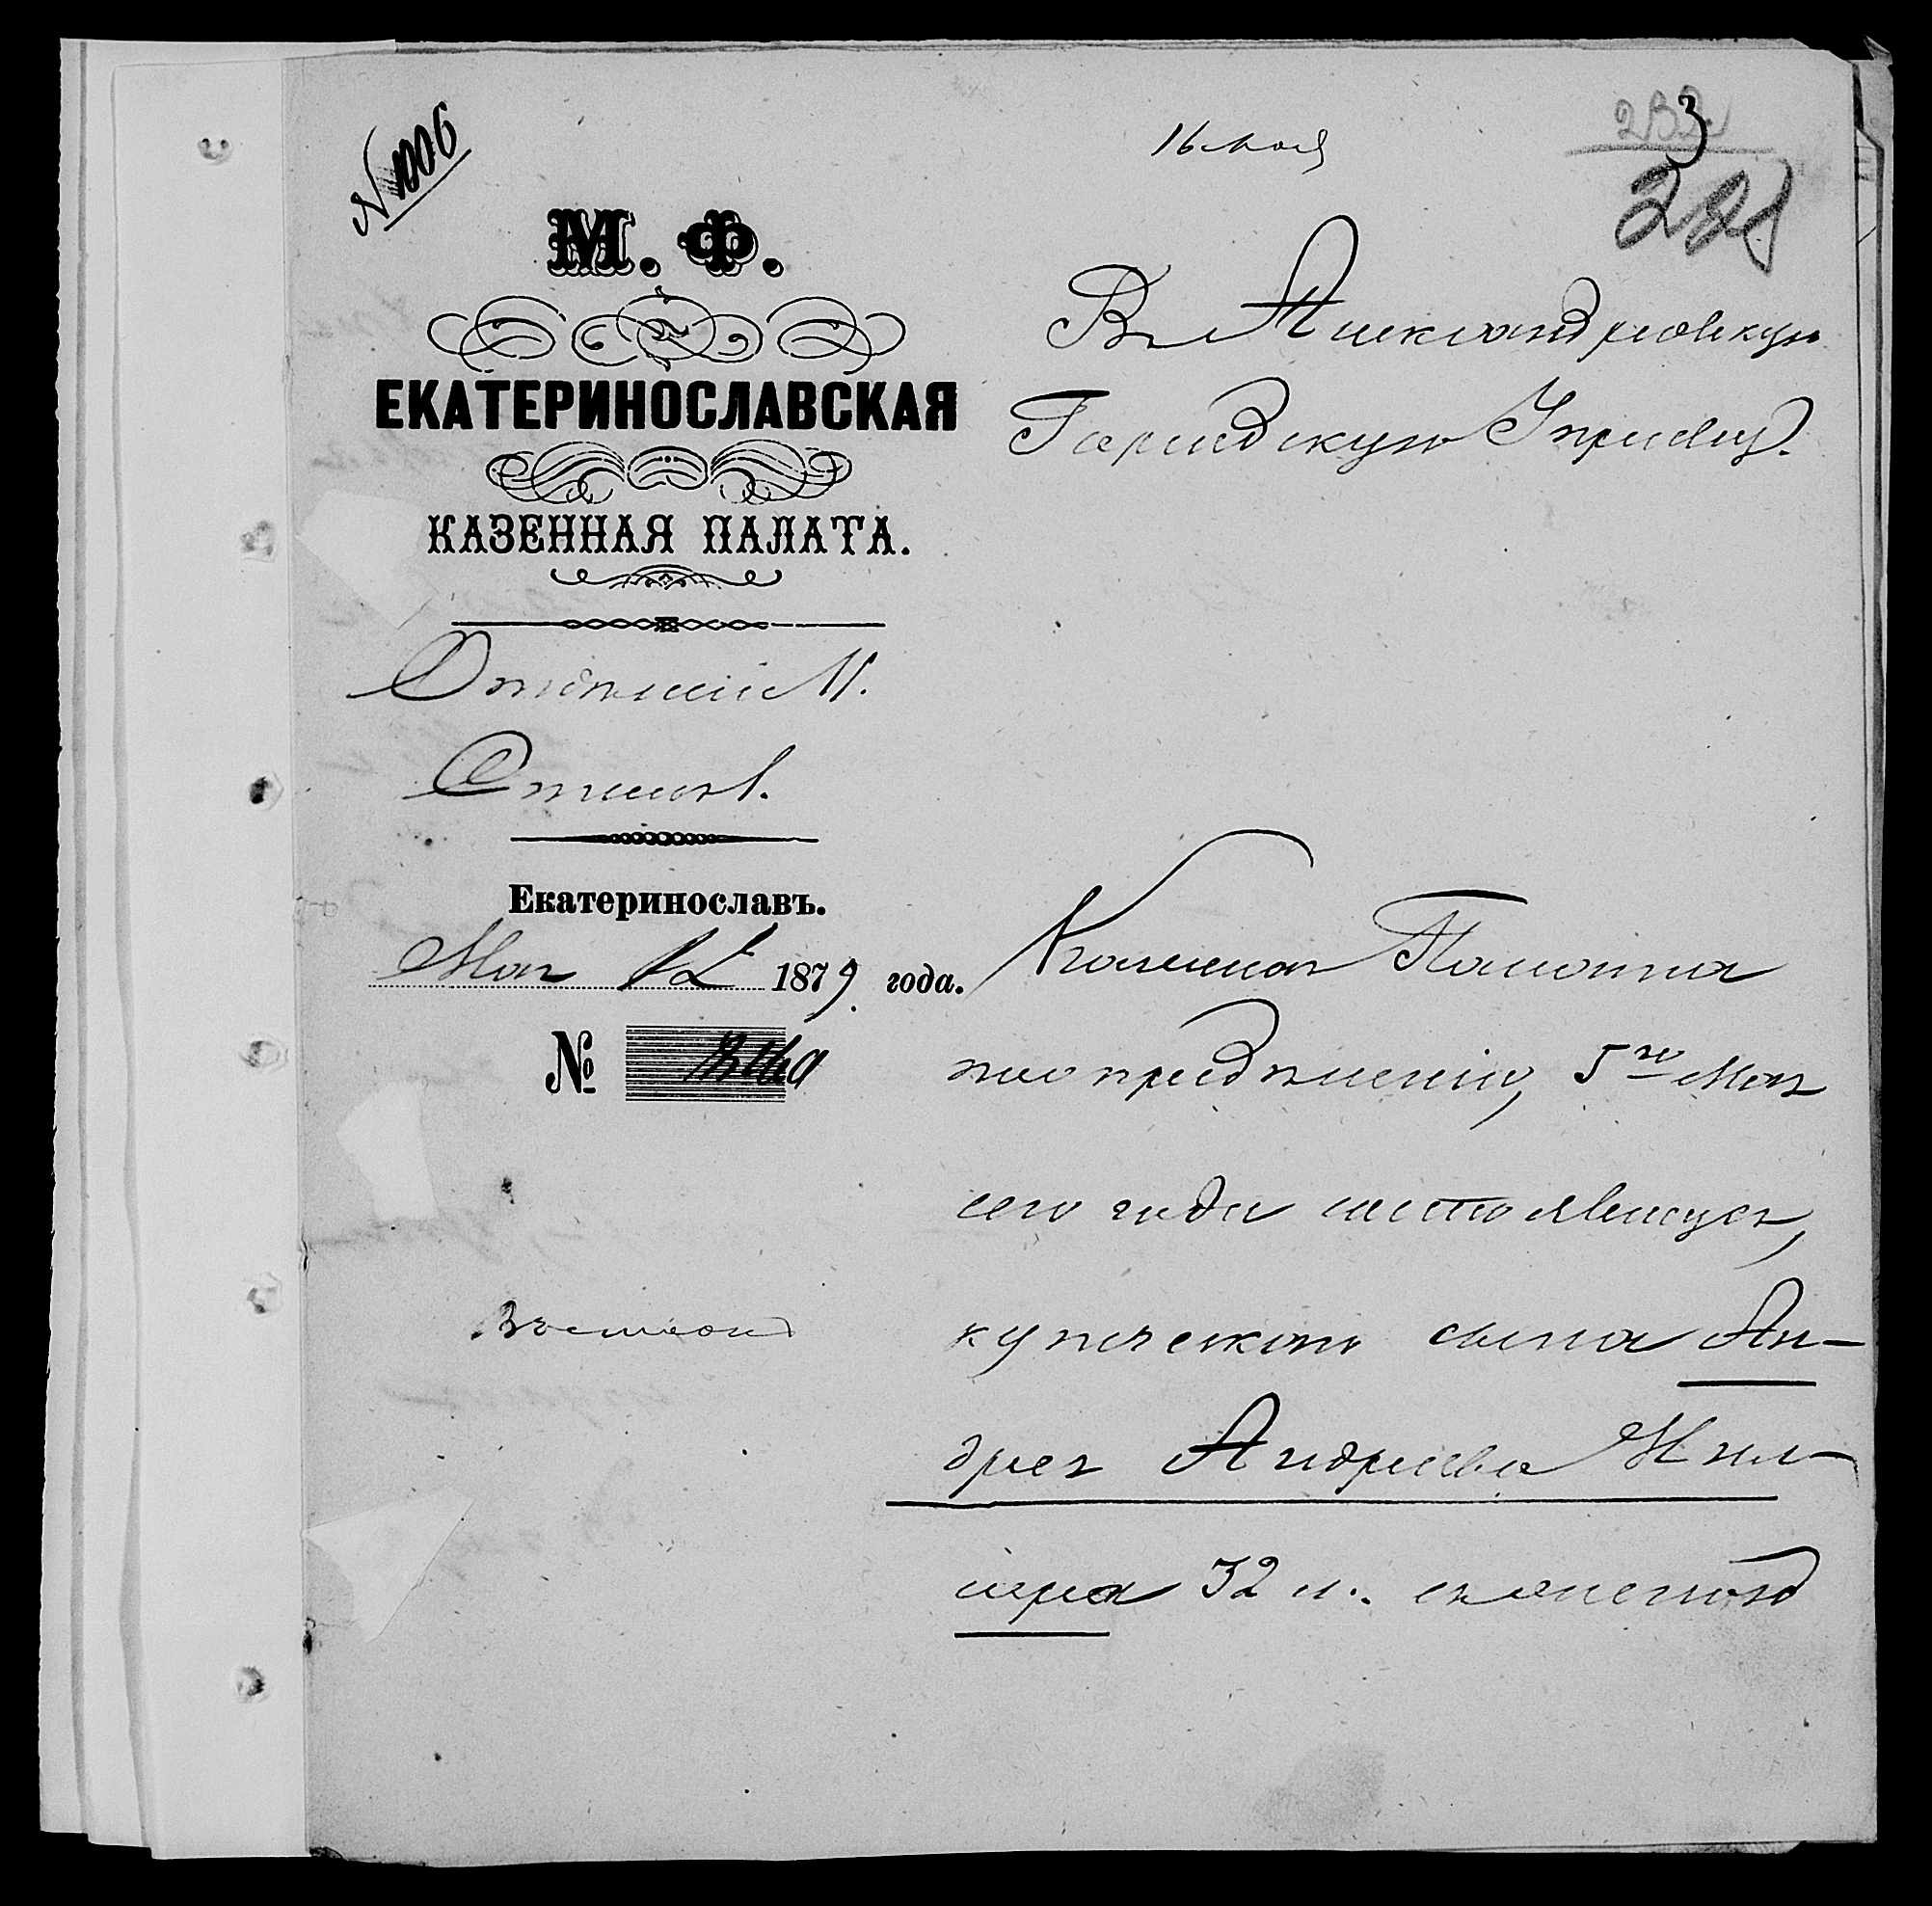 № 1006
16 мая
3
М. Ф.
ЕКАТЕРИНОСЛАВСКАЯ
КАЗЕННАЯ ПАЛАТА.
Отделеніе II.
Столъ 1.
Екатеринославъ.
Мая 12 1879 года.
№
Въ Александровскую
Городскую Управу.
Казенная Палата
по опредѣленію, 5го Мая
сего года состоявшемуся,
купеческаго сына Ан-
дрея Андреева
32 л. съ